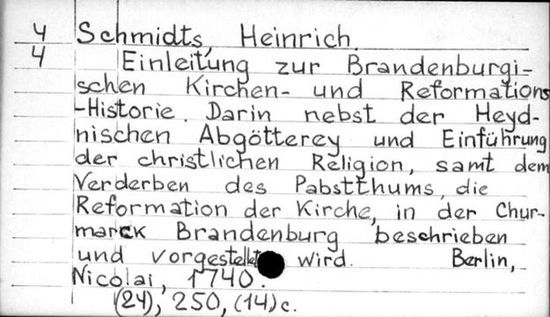 4 Schmidts, Heinrich.
4 Einleitung zur Brandenburgi-
schen Kirchen- und Reformations
-Historie. Darin nebst der Heyd-
nischen Abgötterey und Einführung
der christlichen Religion, samt dem
Verderben des Pabstthums, die
Reformation der Kirche, in der Chur-
marck Brandenburg beschrieben
und vorgestellet wird. Berlin,
Nicolai, 1740.
(24), 250, (14) c.